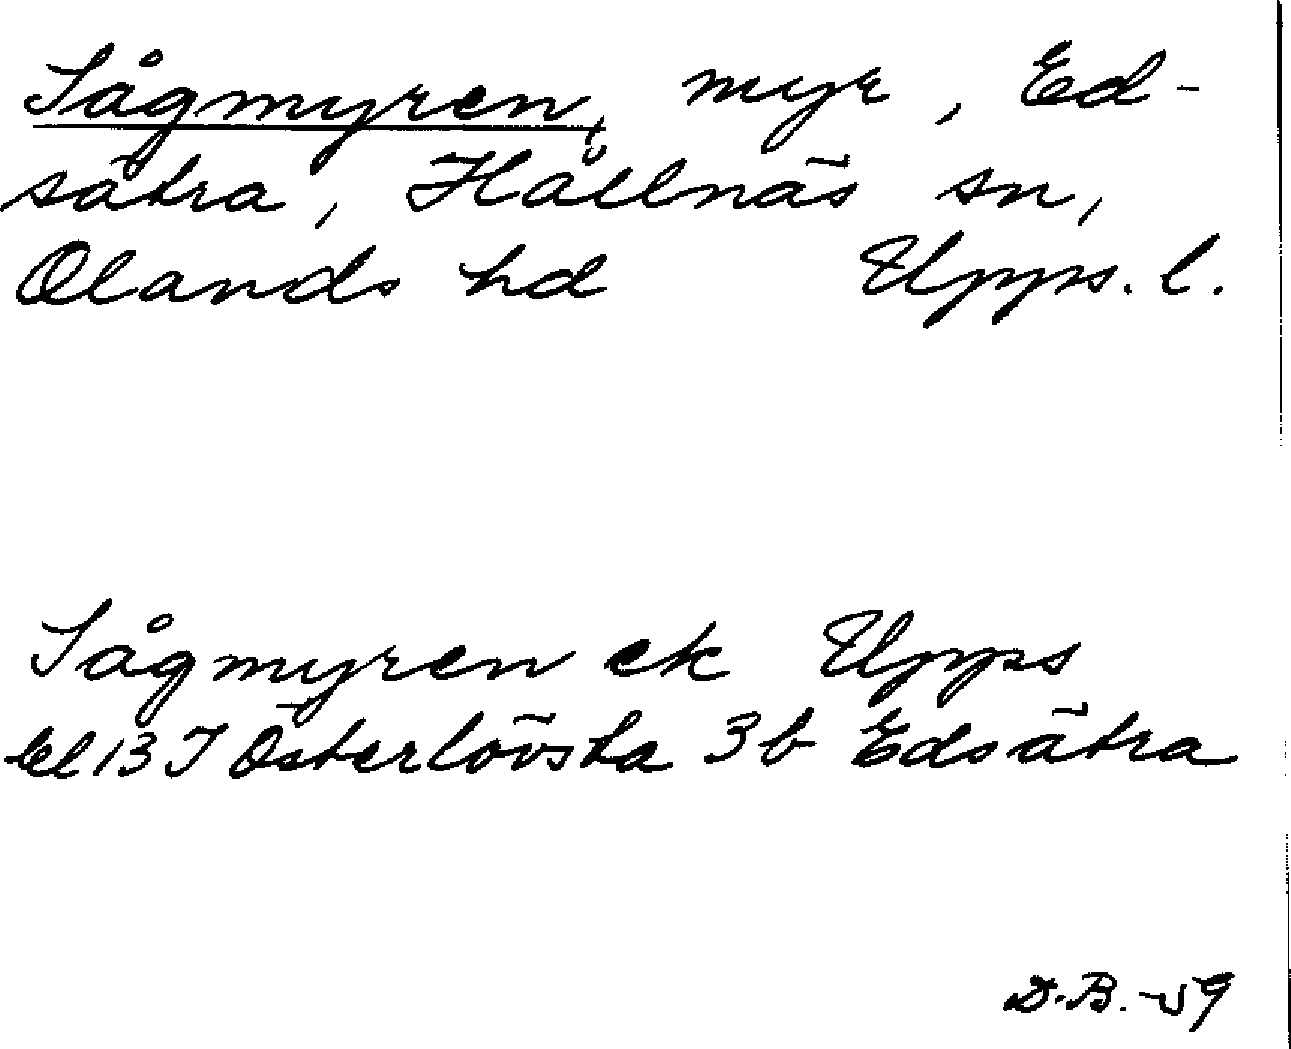 Sågmyren, myr, Ed-
sätra, Hållnäs sn,
Olands hd Upps. l.
Sågmyren ek Upps
bl 13 I Österlövsta 3b Edsätra
D.B. -59